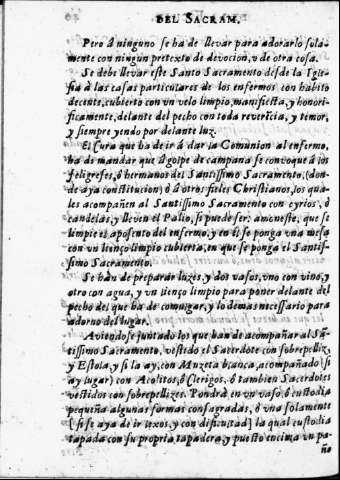 DEL SACRAM.
Pero â ninguno se ha de llevar para adorarlo sola-
mente con ningun pretexto de devocion, v de otra cosa.
Se debe llevar este Santo Sacramento dēsde la Igle-
sia â las casas particulares de los enfermos con habito
decente, cubierto con vn velo limpio, manifiesta, y honori-
ficamente, delante del pecho con toda reverēcia, y temor,
y siempre yendo por delante luz.
El Cura que ha de ir â dar la Comunion al enfermo,
ha de mandar que â golpe de campana se convoque â los
feligreses, ô hermanos del Santissimo Sacramento, (don-
de aya constitucion) ô â otros fieles Christianos, los qua-
les acompañen al Santissimo Sacramento con cyrios, ô
candelas, y lleven el Palio, si puede ser: amoneste, que se
limpie el aposento del enfermo, y en êl se ponga vna mesa
con vn lienço limpio cubierta, en que se ponga el Santis-
simo Sacramento.
Se han de preparar luzes, y dos vasos, vno con vino, y
otro con agua, y vn lienço limpio para poner delante del
pecho del que ha de comulgar, y lo demas necessario para
adorno del lugar.
Aviendose juntado los que han de acompañar al Sā-
tissimo Sacramento, vestido el Sacerdote con sobrepelliz,
y Estola, y si la ay, con Muzeta blanca, acompañado [si
ay lugar] con Acolitos, ô Clerigos, ô tambien Sacerdotes
vestidos con sobrepellizes. Pondrâ en vn vaso, ô custodia
pequeña algunas formas consagradas, ô vna solamente
[si se aya de ir lexos, y con dificultad] la qual custodia
tapada con su propria tapadera, y puesto encima vn pa-
ño